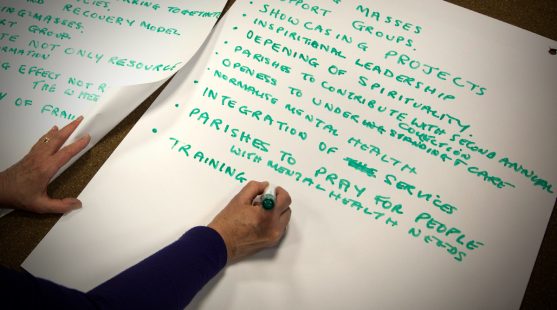 TOGETHER
RECOVERY MODEL
MASSES:
GROUP
NOT ONLY RESOURCE
EFFECT NOT
THE
OF
MASSES
SUPPORT GROUPS.
• SHOWCASING PROJECTS
• INSPIRITIONAL LEADERSHIP
• DEPENING OF SPIRITUALITY
• PARISHES TO CONTRIBUTE WITH SECOND ANNUAL
COLLECTION
• OPENESS TO UNDERSTANDING & CARE
• NORMALISE MENTAL HEALTH
• INTEGRATION OF SERVICES
• PARISHES TO PRAY FOR PEOPLE
WITH MENTAL HEALTH NEEDS
• TRAINING